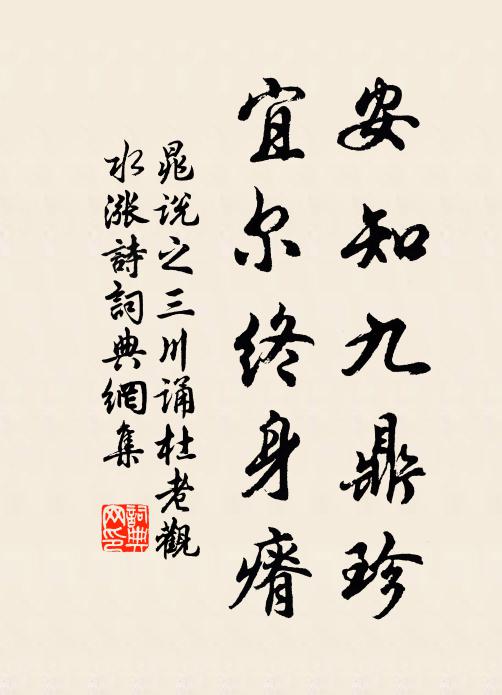 安知九鼎珍
宜尔终身瘠
晁说之三川诵杜老觀
水涨詩詞典網集
詞典网印